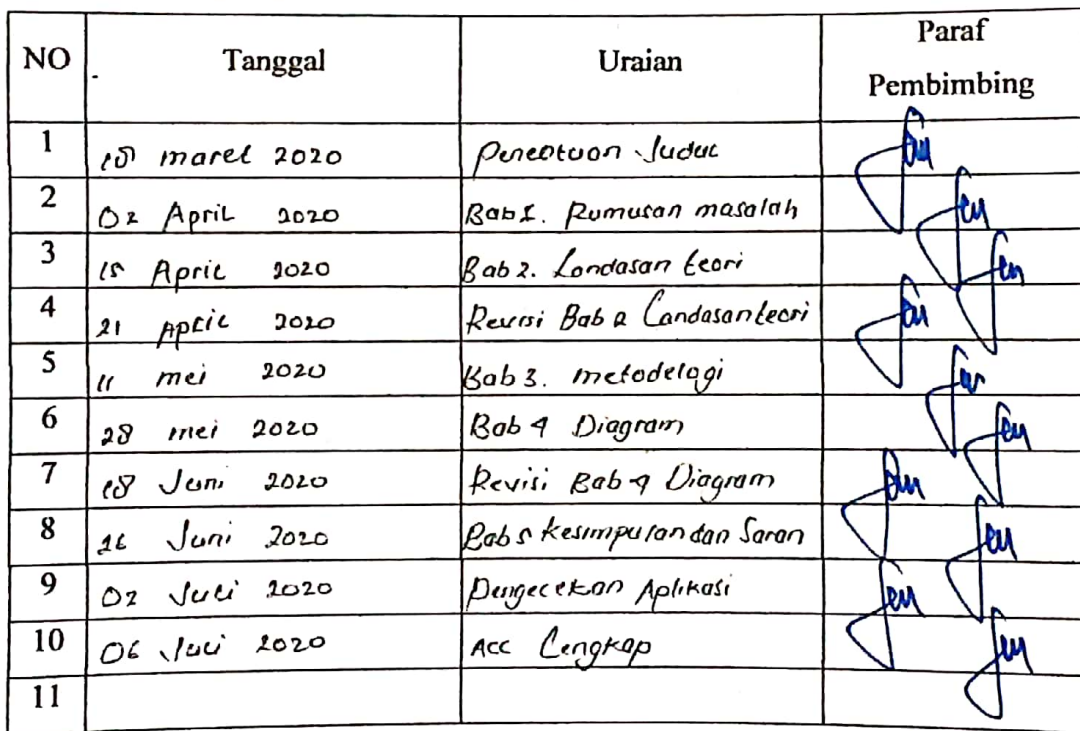 NO Tanggal Uraian Paraf Pembimbing
1 18 maret 2020 Penentuan Judul
2 02 April 2020 Bab 1. Rumusan masalah
3 15 April 2020 Bab 2. Landasan teori
4 21 April 2020 Revisi Bab 2 Landasan teori
5 11 mei 2020 Bab 3. metodelogi
6 28 mei 2020 Bab 4 Diagram
7 18 Juni 2020 Revisi Bab 4 Diagram
8 26 Juni 2020 Bab 5 kesimpulan dan Saran
9 02 Juli 2020 Pengecekan Aplikasi
10 06 Juli 2020 Acc Lengkap
11